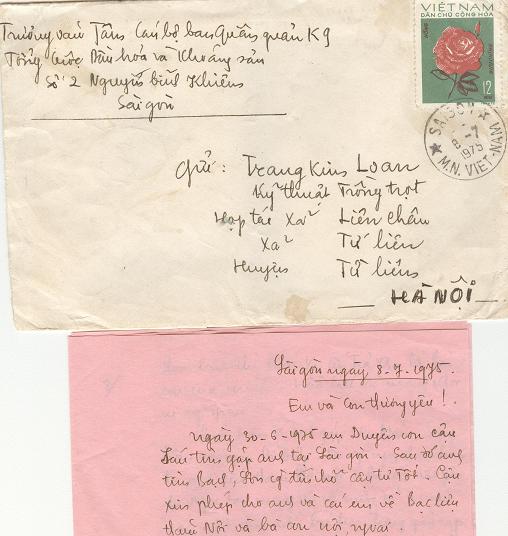 Trương văn Tâm Cán bộ ban Quân quản K9
Tổng Cục Dầu hóa và Khoáng sản
Số 2 Nguyễn bỉnh Khiêm
Sài gòn
VIỆT NAM
DÂN CHỦ CỘNG HÒA
12
SAIGON
8-7
1975
M.N. VIET-NAM
Gửi: Trang Kim Loan
Kỹ thuật Trồng trọt
Hợp tác Xã Liên châu
Xã Tứ liên
Huyện Từ liêm
HÀ NỘI
Sài gòn ngày 8-7-1975.
Em và Con thương yêu!
ngày 30-6-1975 em Duyên con cậu
Sáu tìm gặp anh tại Sài gòn. Sau đó anh
tìm Bạch, Sơn có tìm chở cậu từ Tốt. Cậu
xin phép cho anh và các em về Bạc liêu
thăm Nội và bà con nội, ngoại.